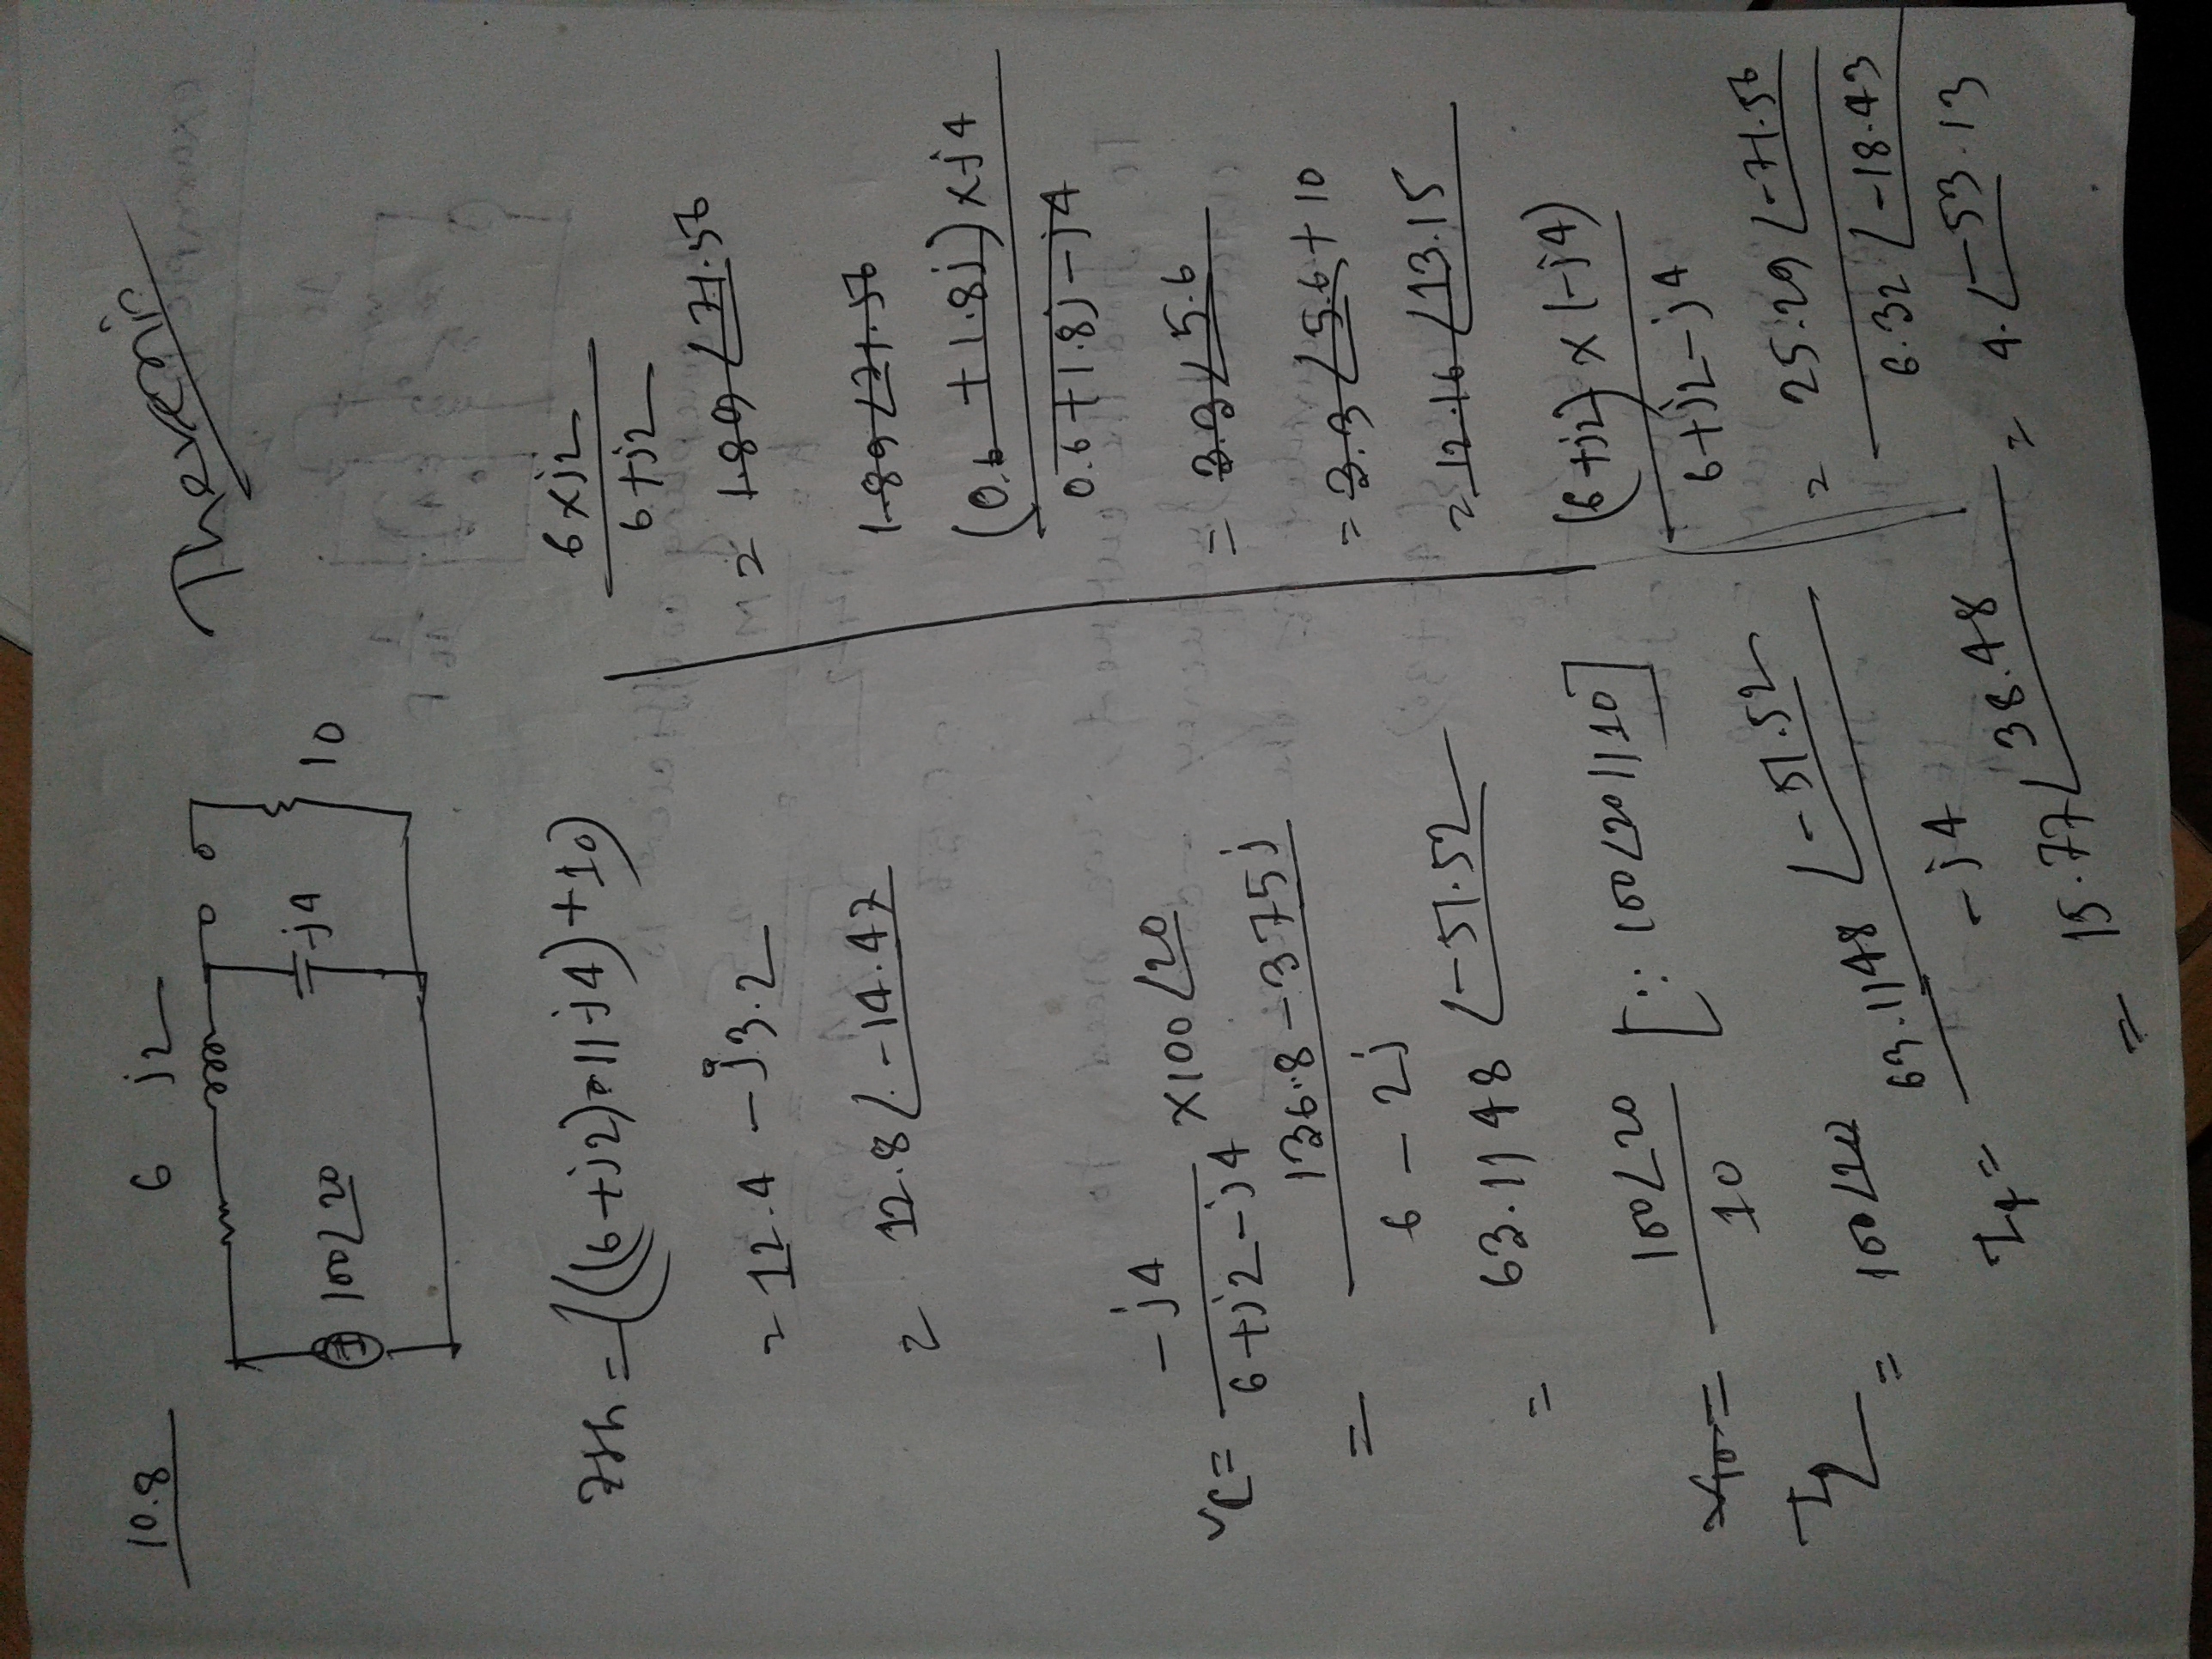 10.8
Thevenin
6 j2
100∠20
-j4
10
Zth = (((6+j2) || -j4) + 10)
= 12.4 - j3.2
= 12.8 ∠-14.47
vc = -j4 / 6+j2-j4 × 100∠20
= 136.8 - 375j / 6 - 2j
= 63.1148 ∠-51.52
v10 = 100∠20 / 10 [∵ 100∠20 || 10]
= 100∠20
I4 = 63.1148 ∠-51.52 / -j4
= 15.77 ∠38.48
6×j2 / 6+j2
= 1.89 ∠71.56
1.89 ∠71.56
(0.6 + 1.8j) × -j4 / 0.6+1.8j-j4
= 3.3 ∠5.6
= 3.3 ∠5.6 + 10
= 12.16 ∠13.15
(6+j2) × (-j4) / 6+j2-j4
= 25.29 ∠-71.56 / 6.32 ∠-18.43
= 4. ∠-53.13